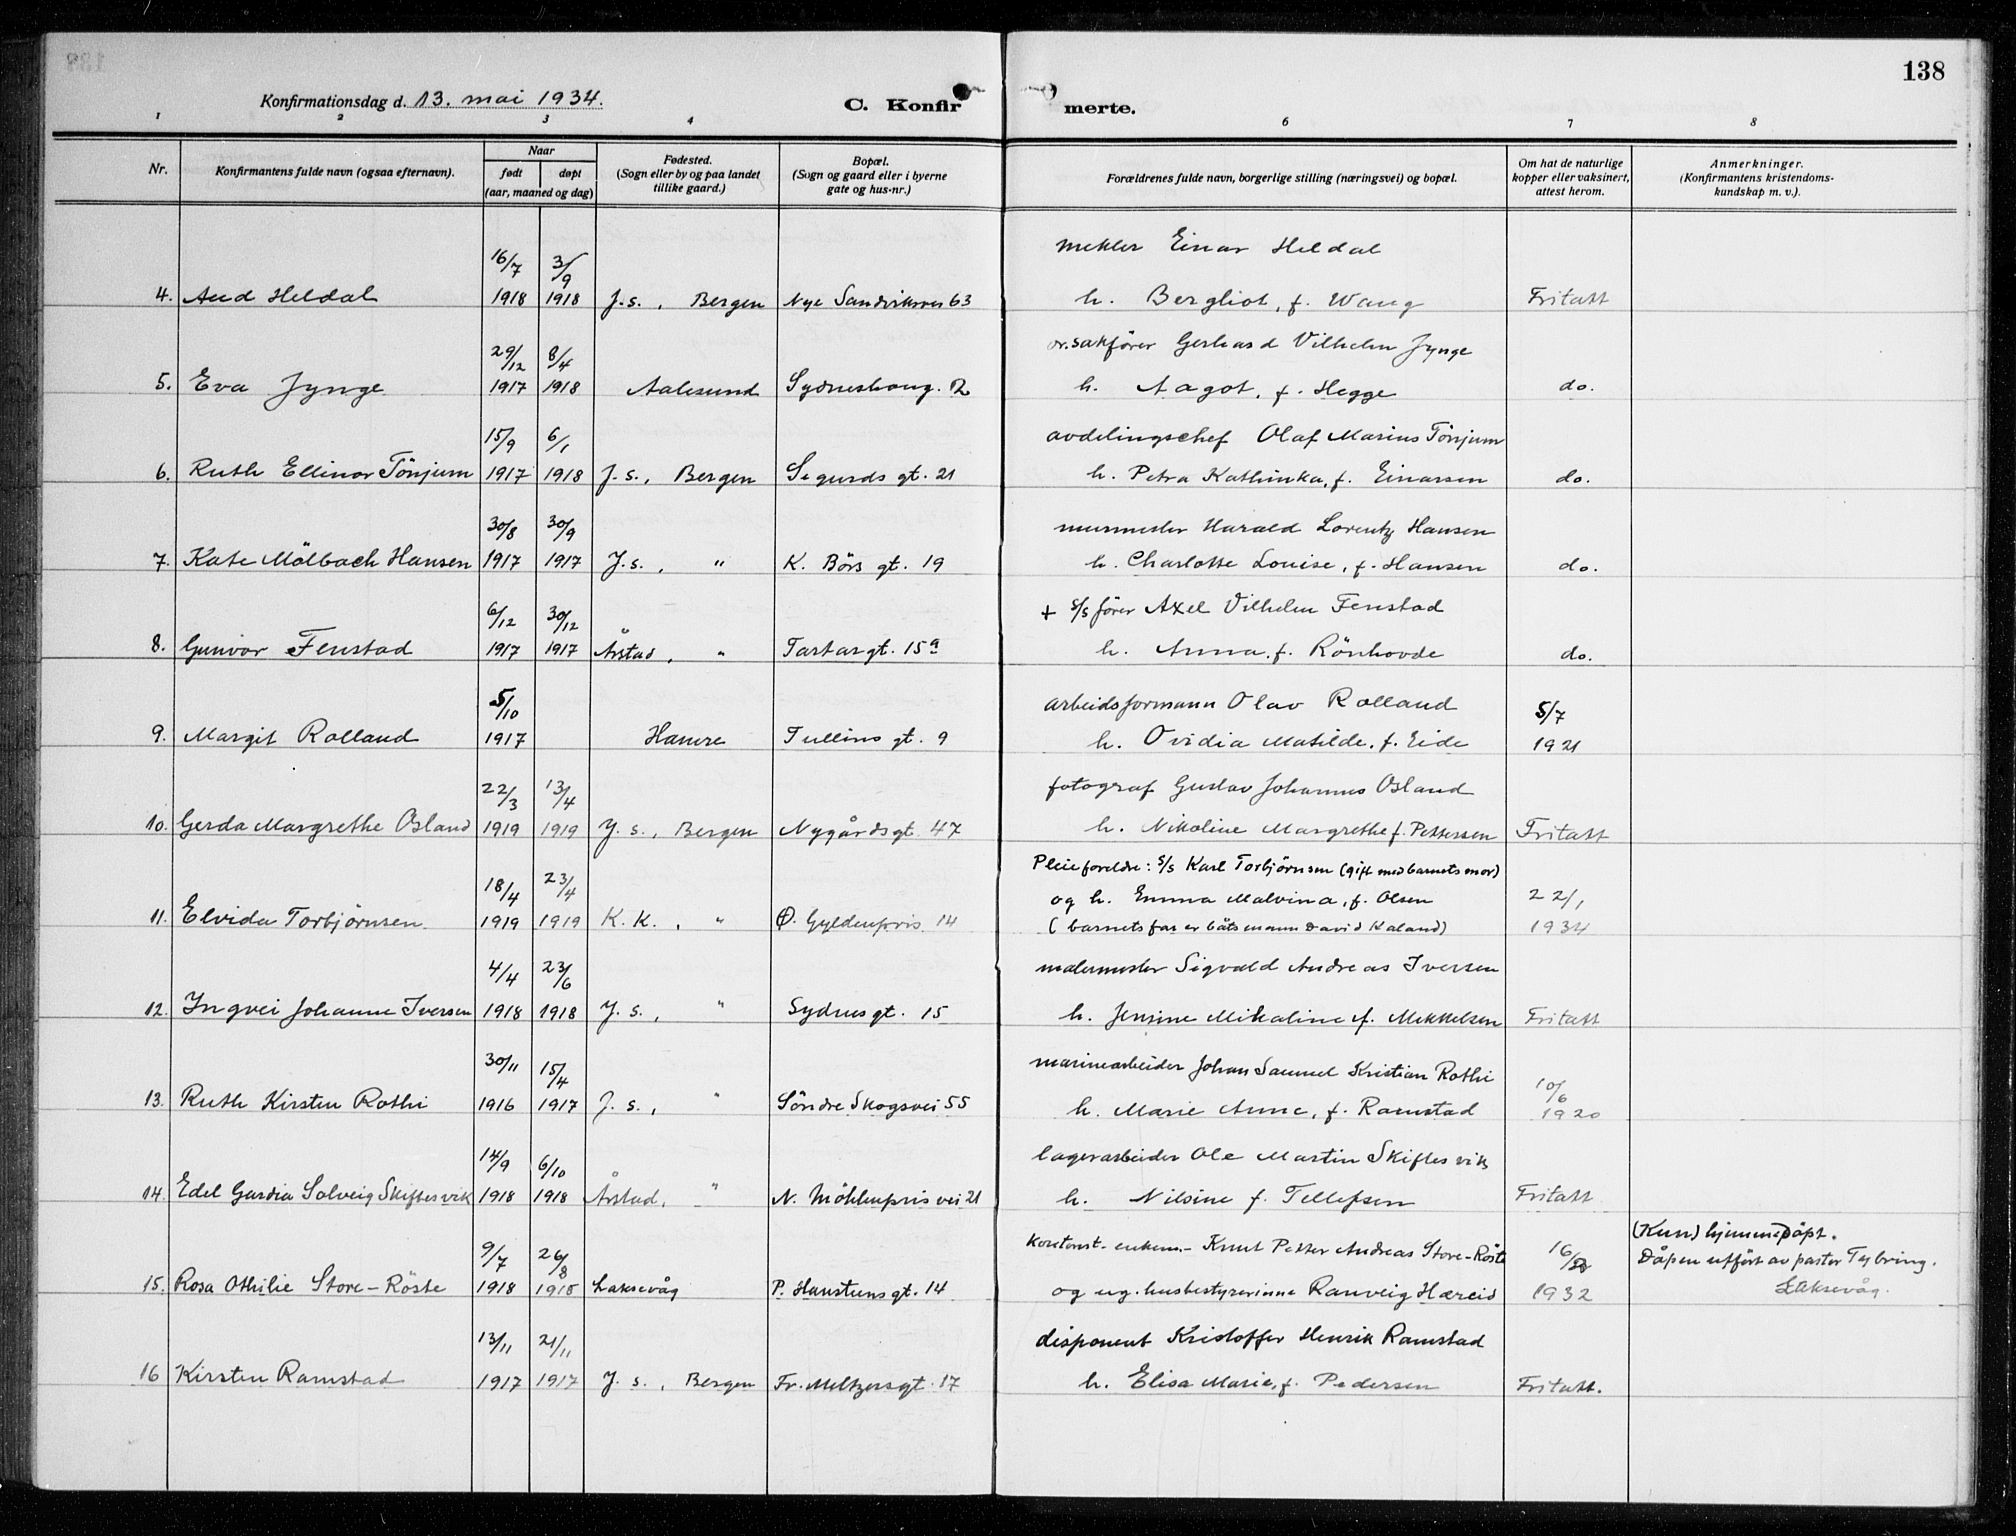 138
Konfirmationsdag d. 13. mai 1934.
C. Konfirmerte.
1 2 3 4 6 7 8
Nr. Konfirmantens fulde navn (ogsaa efternavn). Naar født døpt (aar, maaned og dag) Fødested. (Sogn eller by og paa landet tillike gaard.) Bopæl. (Sogn og gaard eller i byerne gate og hus-nr.) Forældrenes fulde navn, borgerlige stilling (næringsvei) og bopæl. Om hat de naturlige kopper eller vaksinert, attest herom. Anmerkninger. (Konfirmantens kristendomskundskap m. v.).
16/7 3/9 mekler Einar Heldal
4. Aud Heldal 1918 1918 J.s., Bergen Nye Sandviksvei 63 h. Bergliot, f. Wang Fritatt
29/12 8/4 or.sakfører Gerhard Vilhelm Jynge
5. Eva Jynge 1917 1918 Aalesund Sydneshaug. 12 h. Aagot, f. Hegge do.
15/9 6/1 avdelingschef Olaf Marius Tönjum
6. Ruth Ellinor Tönjum 1917 1918 J.s., Bergen Sigurds gt. 21 h. Petra Kathinka, f. Einarsen do.
30/8 30/9 murmester Harald Lorentz Hansen
7. Kate Mölbach Hansen 1917 1917 J.s., " K. Börs gt. 19 h. Charlotte Louise, f. Hansen do.
6/12 30/12 + s/s fører Axel Vilhelm Fenstad
8. Gunvor Fenstad 1917 1917 Årstad, " Tartargt. 15a h. Anna, f. Rönhovde do.
5/10 arbeidsformann Olav Rolland 5/7
9. Margit Rolland 1917 Hamre Tullins gt. 9 h. Ovidia Matilde, f. Eide 1921
22/3 13/4 fotograf Gustav Johannes Osland
10. Gerda Margrethe Osland 1919 1919 J.s., Bergen Nygårdsgt. 47 h. Nikoline Margrethe f. Pettersen Fritatt
18/4 23/4 Pleieforeldre: s/s Karl Torbjørnsen (gift med barnets mor) 22/1
11. Elvida Torbjörnsen 1919 1919 K.K., " Ø. Gyldenpris 14 og h. Emma Malvina, f. Olsen 1934
(barnets far er båtsmann David Kaland)
4/4 23/6 malermester Sigvald Andreas Iversen
12. Ingvei Johanne Iversen 1918 1918 J.s., " Sydnesgt. 15 h. Jensine Mikaline f. Mikkelsen Fritatt
30/11 15/4 marinearbeider Johan Samuel Kristian Rothi 10/6
13. Ruth Kirsten Rothi 1916 1917 J.s., " Söndre Skogsvei 55 h. Marie Anne, f. Ramstad 1920
14/9 6/10 lagerarbeider Ole Martin Skiftesvik
14. Edel Gardia Solveig Skiftesvik 1918 1918 Årstad, " N. Möhlenprisvei 21 h. Nilsine f. Tellefsen Fritatt
9/7 26/8 Knut Petter Andreas Store-Röste 16/ (Kun) hjemmedöpt.
15. Rosa Othilie Store-Röste 1918 1918 Laksevåg P. Hanstensgt. 14 og ug. husbestyrerinne Ranveig Hæreid 1932 Dåpen utfört av pastor Tybring.
Laksevåg.
13/11 21/11 disponent Kristoffer Henrik Ramstad
16 Kirsten Ramstad 1917 1917 J.s., Bergen Fr. Meltzersgt. 17 h. Elisa Marie, f. Pedersen Fritatt.